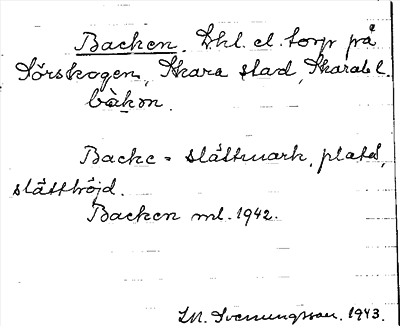 Backen. Lhl. el. torp på
Sörskogen, Skara stad, Skarab l.
bàkɔn.
Backe = slättmark, platå,
slätthöjd.
Backen ml. 1942.
M. Svenungsson. 1943.